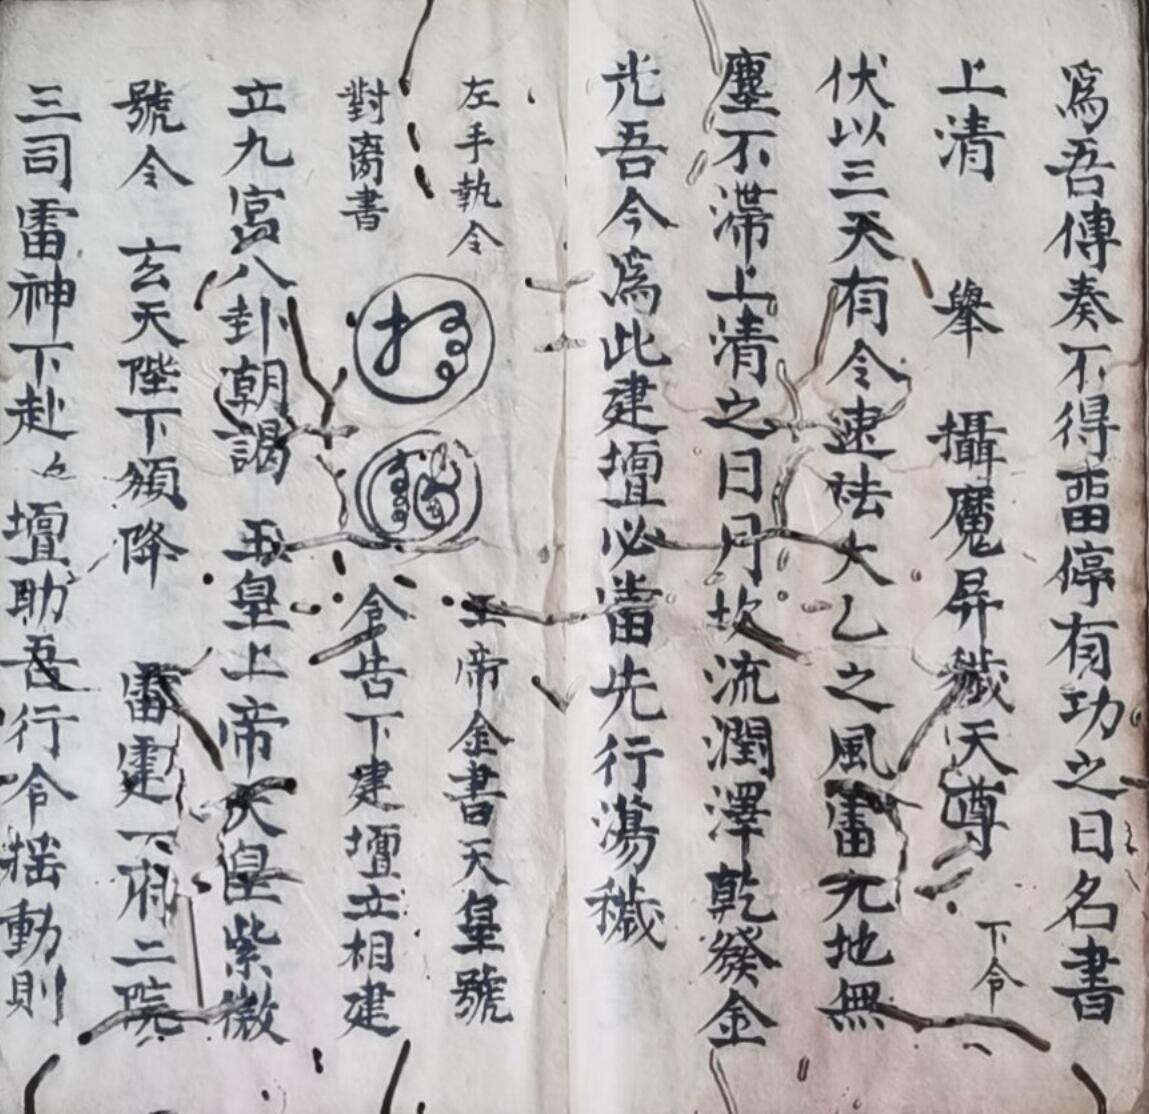 為吾傳奏不得畱停有功之日名書
上清 舉 攝魔屏穢天尊 下令
伏以三天有令逮祛大乙之風雷九地無
塵不滯上清之日月坎流潤澤乾發金
光吾今為此建壇必當先行蕩穢
左手執令 玉帝金書天皇號
對离書 令告下建壇立相建
立九宮八卦朝謁 玉皇上帝天皇紫微
號令 玄天陛下頒降 雷霆下府二院
三司雷神下赴々壇助吾行令搖動則